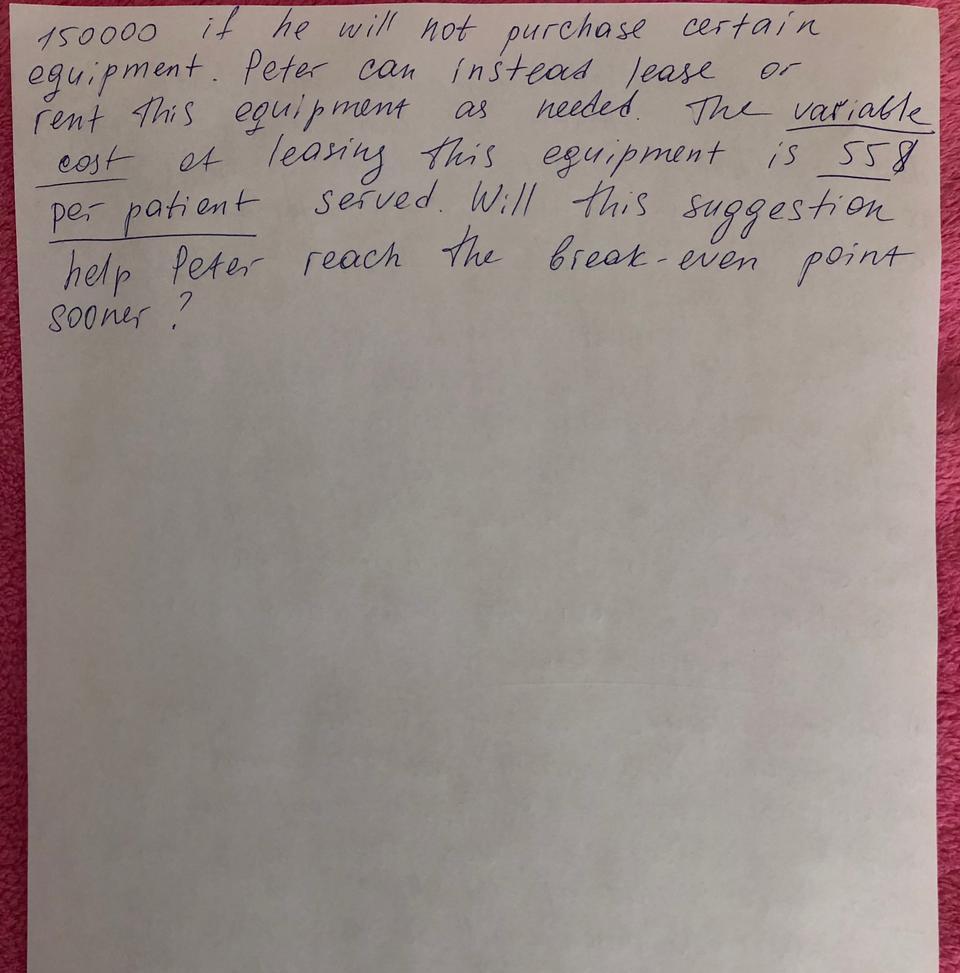 150000 if he will not purchase certain
equipment. Peter can instead lease or
rent this equipment as needed. The variable
cost of leasing this equipment is 55$
per patient served. Will this suggestion
help Peter reach the break-even point
sooner?